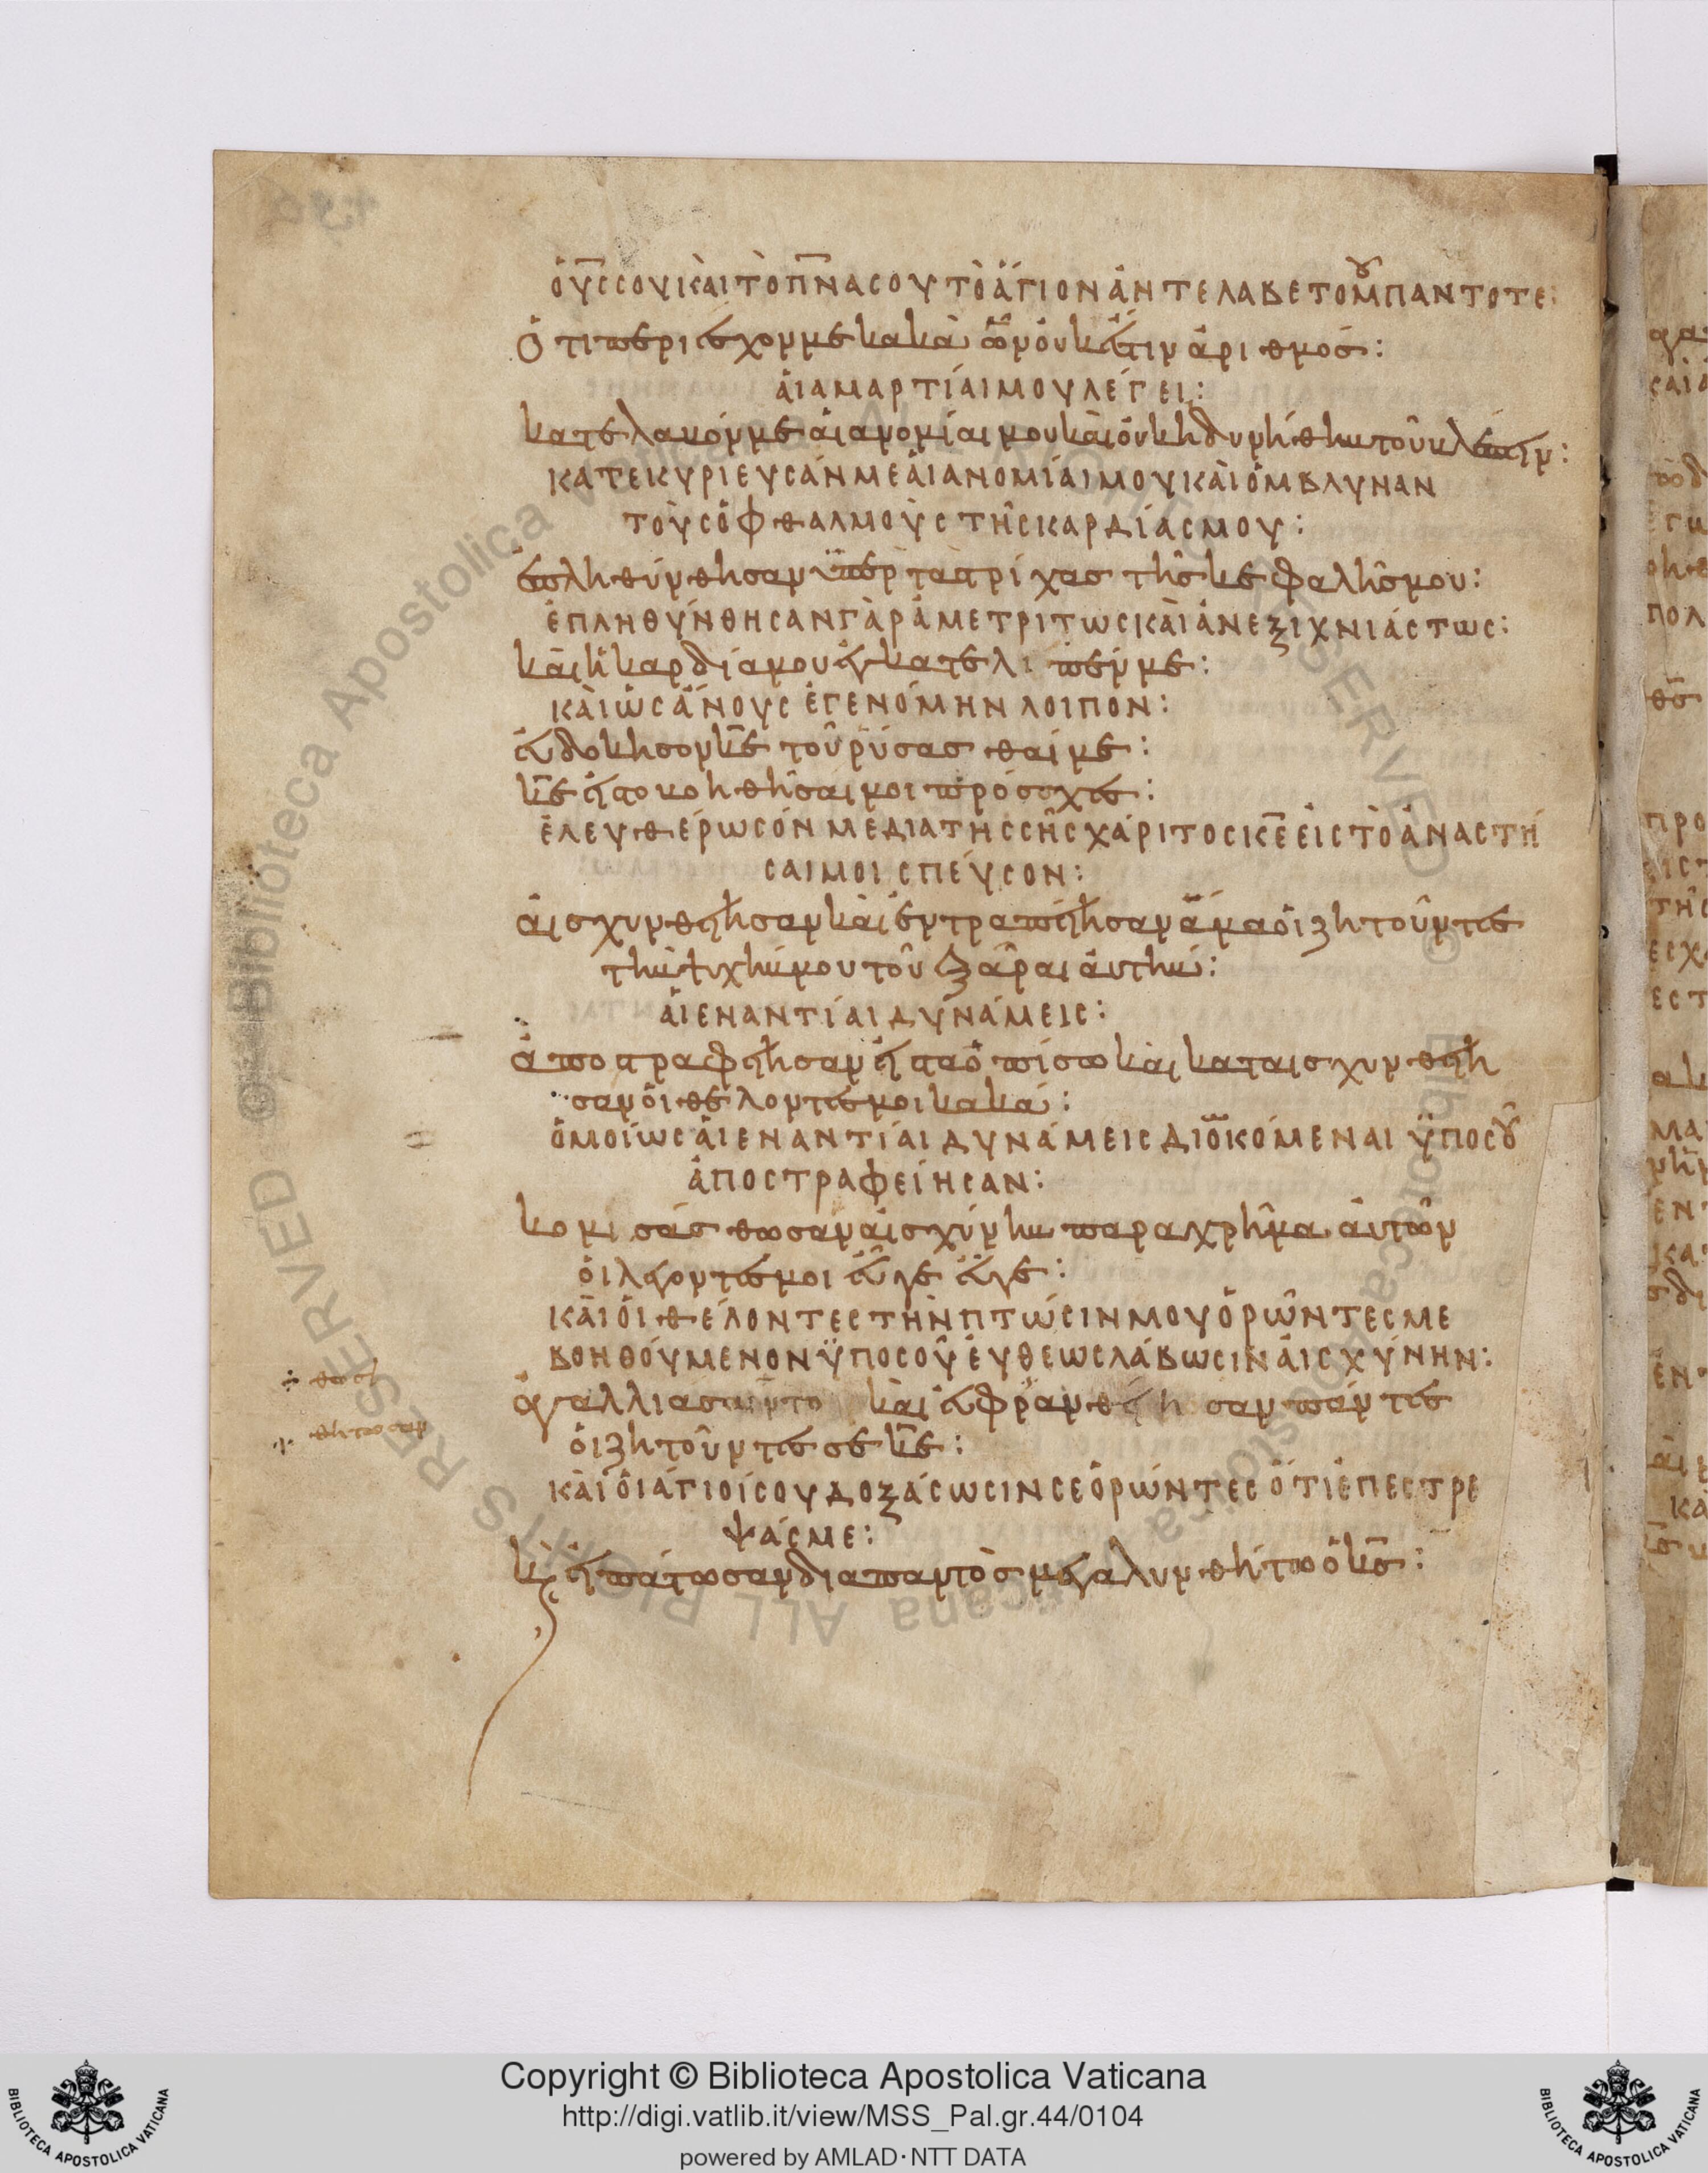 ὁ ῡς σου κὰι τὸ πνᾱ σου τὸ ἅγιον ἀντελάβετό μου παντοτε:
Ὅτι περιέσχον με κακὰ ὧν ὀυκ ἔστιν ἀριθμός:
ἁι ἁμαρτίαι μου λέγει:
κατέλαβόν με ἁι ἀνομίαι μου κὰι ὀυκ ἠδυνήθην τοῦ βλέπειν:
κατεκυριευσάν με ἁι ἀνομίαι μου κὰι ὄμβλυναν
τοὺς ὀφθαλμοὺς τῆς καρδίας μου:
ἐπληθύνθησαν ὑπὲρ τὰς τρίχας τῆς κεφαλῆς μου:
ἐπληθύνθησαν γὰρ ἀμετρίτως κὰι ἀνεξιχνιάστως:
κὰι ἡ καρδία μου ἐγκατέλιπέν με:
κὰι ὡς ἄνους ἐγενόμην λοιπον:
ἐυδοκησον κε̄ τοῦ ῥύσασθαί με:
κε̄ εἰς το βοηθῆσαί μοι πρόσχες:
ἐλευθέρωσόν με δια τῆς σῆς χάριτος κε̄ ἐις τὸ ἀναστή
σαι μοι σπέυσον:
ἀισχυνθείησαν κὰι ἐντραπείησαν ἅμα ὁι ζητοῦντες
τὴν ψυχήν μου τοῦ ἐξᾶραι ἀυτήν:
ἁι ἐναντίαι δυνάμεις:
ἀποστραφείησαν εἰς τα ὀπίσω κὰι καταισχυνθείη
σαν ὁι θέλοντές μοι κακά:
ὁμοίως ἁι ἐναντίαι δυνάμεις διωκόμεναι ὑπο σοῦ
ἀποστραφείησαν:
κομισάσθωσαν ἀισχύνην παραχρῆμα ἀυτῶν
ὁι λέγοντές μοι ἐῦγε ἐῦγε:
κὰι ὁι θέλοντες τὴν πτώσιν μου ὁρῶντες με
βοηθόυμενον ὑπο σοῦ ἐυθεως λάβωσιν ἀισχύνην:
ἀγαλλιασαιντο κὰι ἐυφρανθείησαν πάντες
ὁι ζητοῦντες σέ κε̄:
κὰι ὁι ἅγιοί σου δοξάσωσιν σε ὁρώντες ὅτι ἐπεστρε
ψάς με:
κὰι ἐιπάτωσαν δια παντὸς μεγαλυνθήτω ὁ κς̄:
θωσ
θητωσαν
Copyright © Biblioteca Apostolica Vaticana
http://digi.vatlib.it/view/MSS_Pal.gr.44/0104
powered by AMLAD·NTT DATA